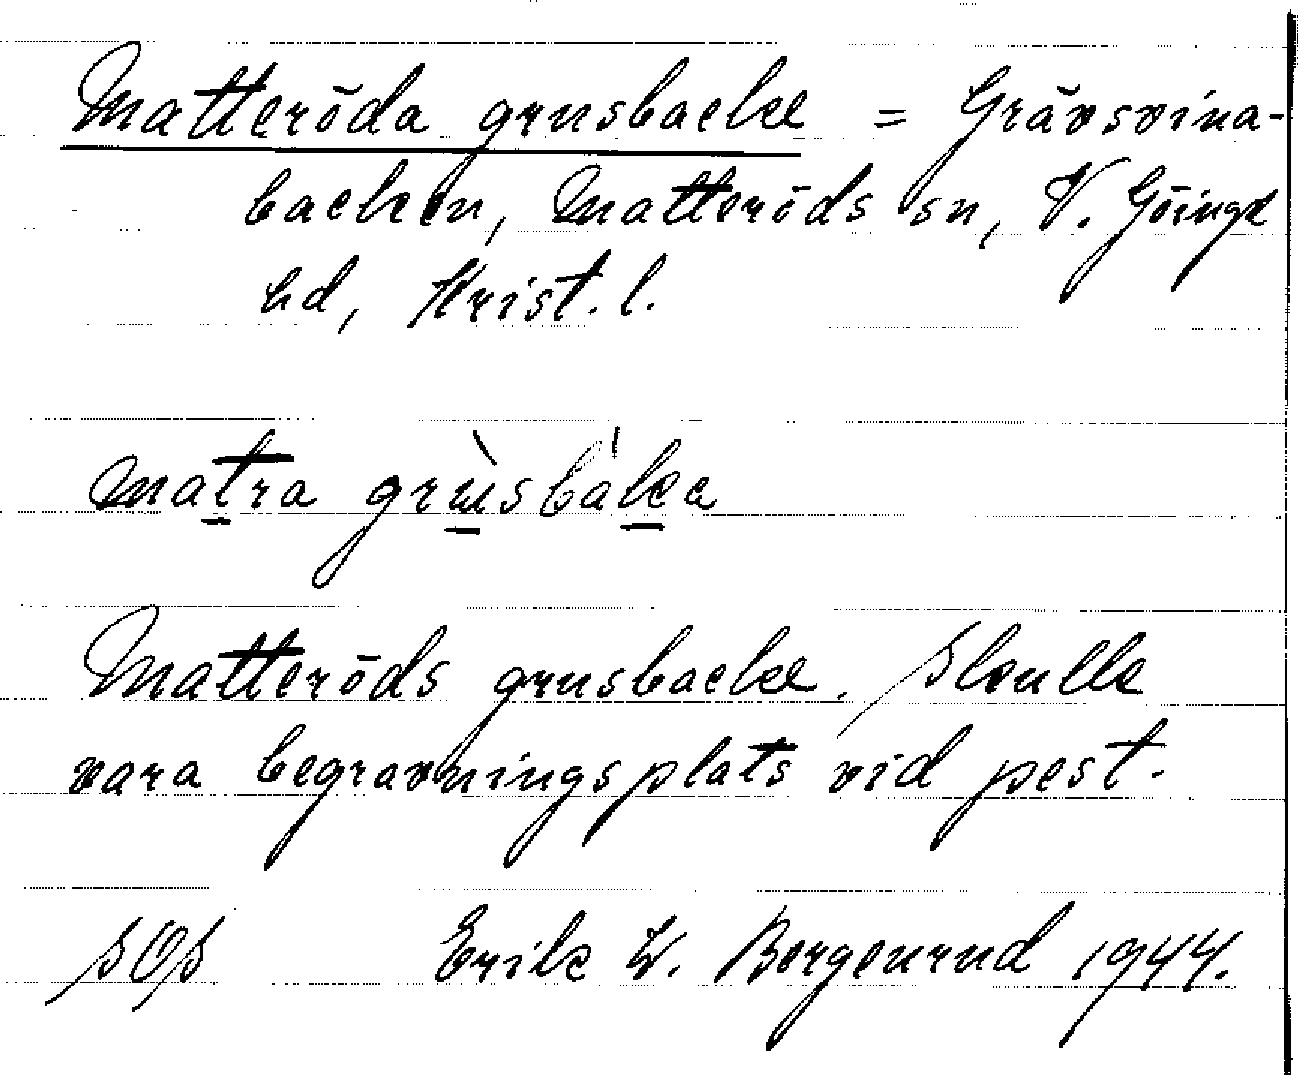 Matteröda grusbacke = Grävsvina-
backen, Matteröds sn, V. Göinge
hd, Krist. l.
matra grùsbákea
Matteröds grusbacke. Skulle
vara begravningsplats vid pest.
SOS Erik W. Borgenrud 1944.